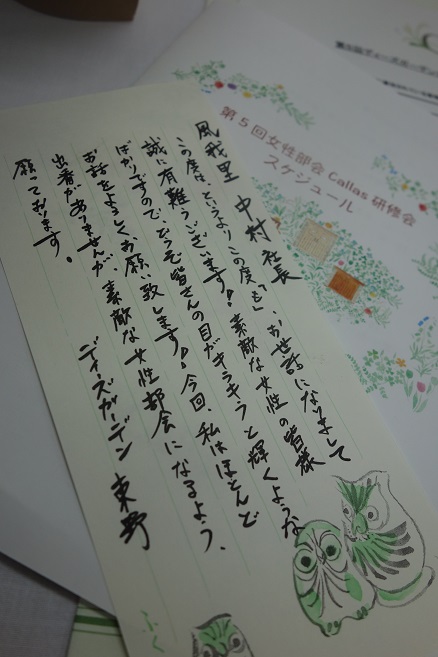 第5回女性部会 Callas 研修会
スケジュール
風我里 中村 社長
この度は、というよりこの度「も」、お世話になりまして
誠に有難うございます！素敵な女性の皆様
ばかりですので、どうぞ皆さんの目がキラキラと輝くような
お話をよろしくお願い致します！今回、私はほとんど
出番がありませんが、素敵な女性部会になるよう、
願っております。
ディーズガーデン 東野
ふく